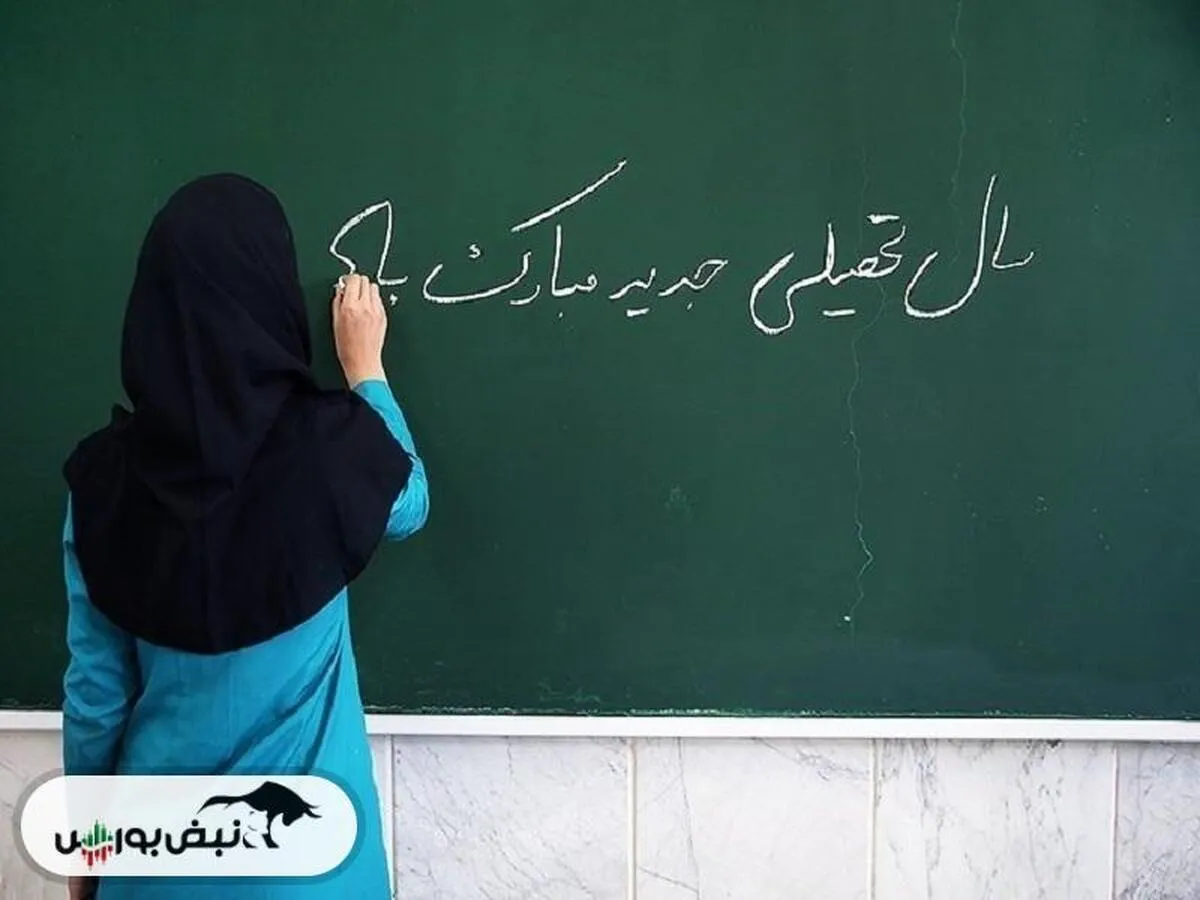 سال تحصیلی جدید مبارک با
نبض بورس